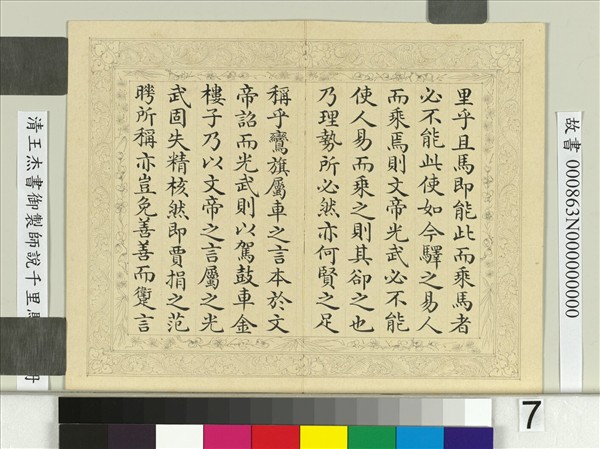 里乎且馬即能此而乘馬者
必不能此使如今驛之易人
而乘焉則文帝光武必不能
使人易而乘之則其卻之也
乃理勢所必然亦何賢之足
稱乎鸞旗屬車之言本於文
帝詔而光武則以駕鼓車金
樓子乃以文帝之言屬之光
武固失精核然即賈捐之范
曄所稱亦豈免善善而躗言
故書 000863N000000000
清王杰書御製師說千里馬
冊
7